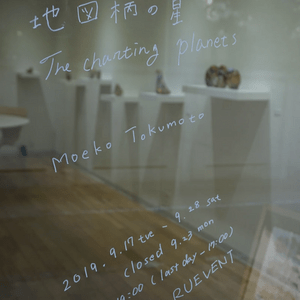 地図柄の星
The charting planets
Moeko Tokumoto
2019. 9.17 tue - 9.28 sat
closed 9.23 mon
:00 (last day - 17:00)
RUEVENT